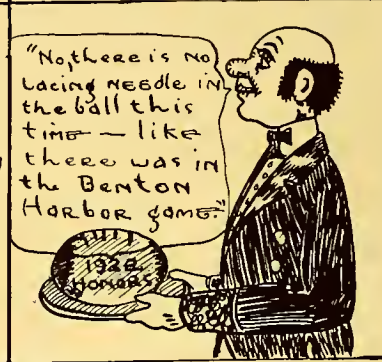 "No, there is no
lacing needle in
the ball this
time — like
there was in
the Benton
Harbor game."
1928
HONORS